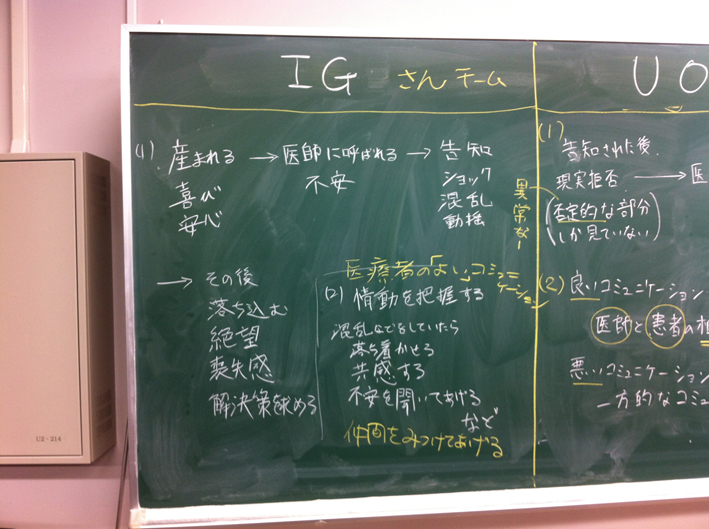 IG さんチーム
(1) 産まれる → 医師に呼ばれる → 告知
喜び
安心
不安
ショック
混乱
動揺
→ その後
落ち込む
絶望
喪失感
解決策を求める
医療者の「よい」コミュニケーション
(2) 情動を把握する
混乱などをしていたら
落ち着かせる
共感する
不安を聞いてあげる
など
仲間をみつけてあげる
UO
(1)
告知された後
現実拒否 → 医
異常な
(否定的な部分
しか見ていない)
(2) 良いコミュニケーション
医師と患者の相
悪いコミュニケーション
一方的なコミュ
U2-214